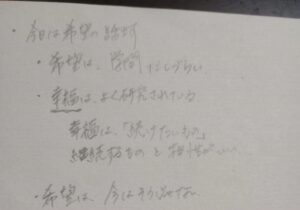 ・今日は希望の話です
・希望は、学問にしづらい
・幸福は、よく研究されている
幸福は、「続けたいもの」
継続するもの と 相性がいい
・希望は、今はそう